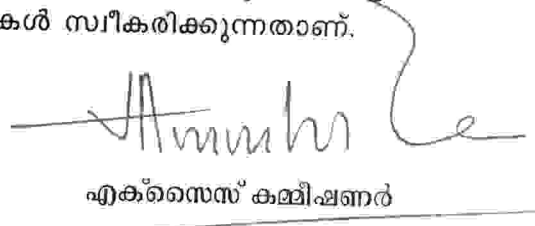 കൾ സ്വീകരിക്കുന്നതാണ്.
എക്സൈസ് കമ്മീഷണർ